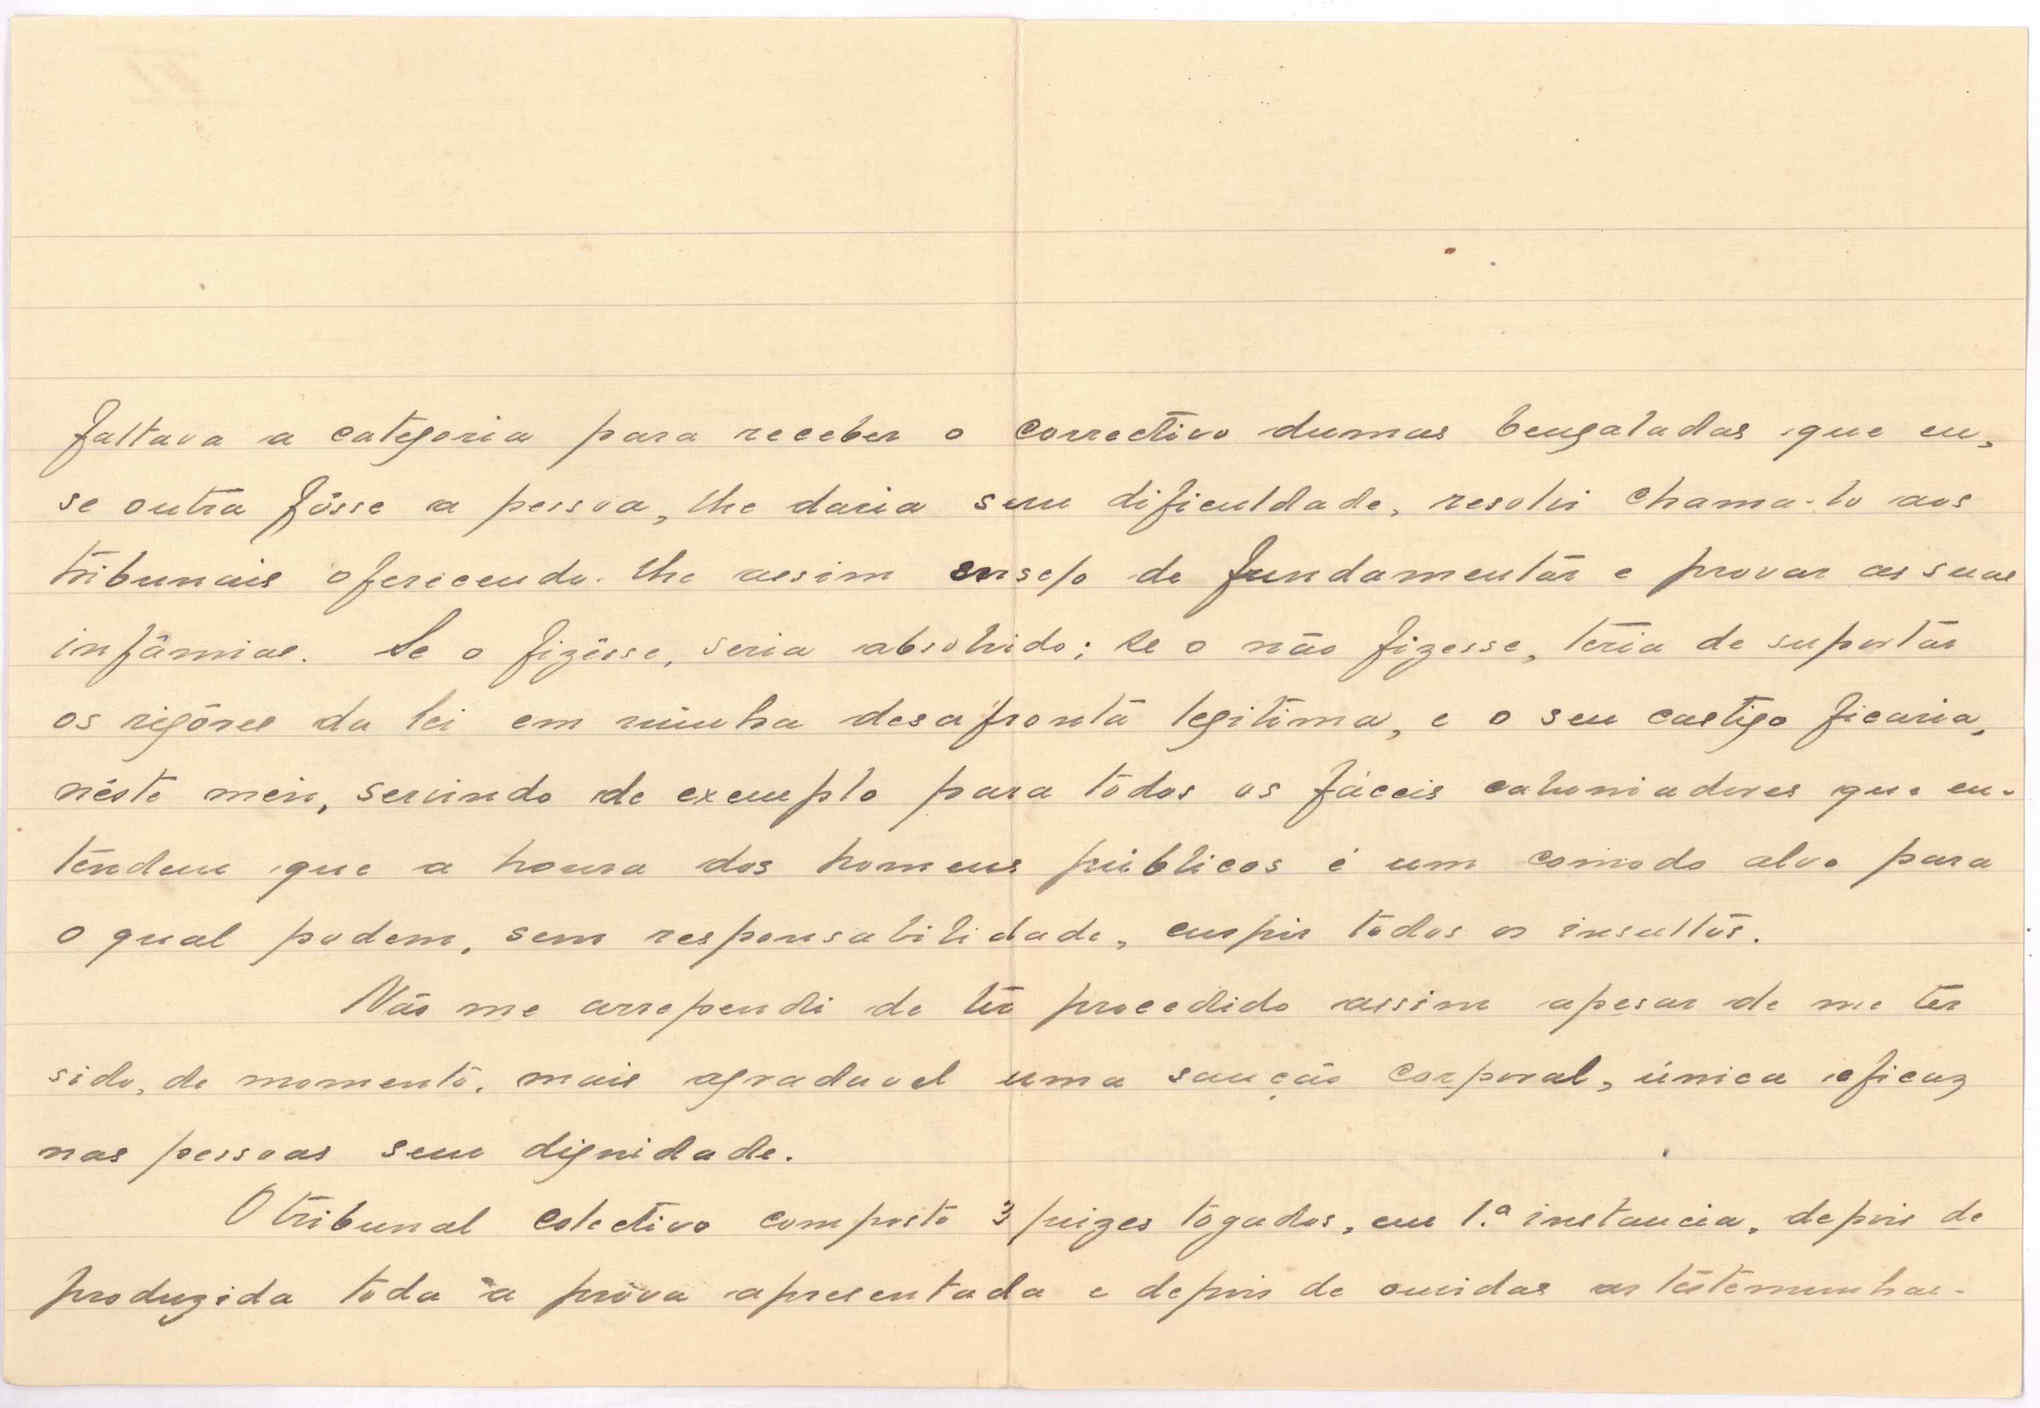 faltava a categoria para receber o correctivo dumas bengaladas que eu,
se outra fôsse a pessoa, lhe daria sem dificuldade, resolvi chama-lo aos
tribunais oferecendo-lhe assim ensejo de fundamentar e provar as suas
infâmias. Se o fizésse, seria absolvido; se o não fizesse, teria de suportar
os rigôres da lei em minha desafronta legitima, e o seu castigo ficaria,
néste meio, servindo de exemplo para todos os fáceis caluniadores que en-
tendem que a honra dos homens públicos é um comodo alvo para
o qual podem, sem responsabilidade, cuspir todos os insultos.
Não me arrependi de ter procedido assim apesar de me ter
sido, de momento, mais agradavel uma sanção corporal, única eficaz
nas pessoas sem dignidade.
O tribunal colectivo composto 3 juizes togados, em 1.ª instancia, depois de
produzida toda a prova apresentada e depois de ouvidas as testemunhas-